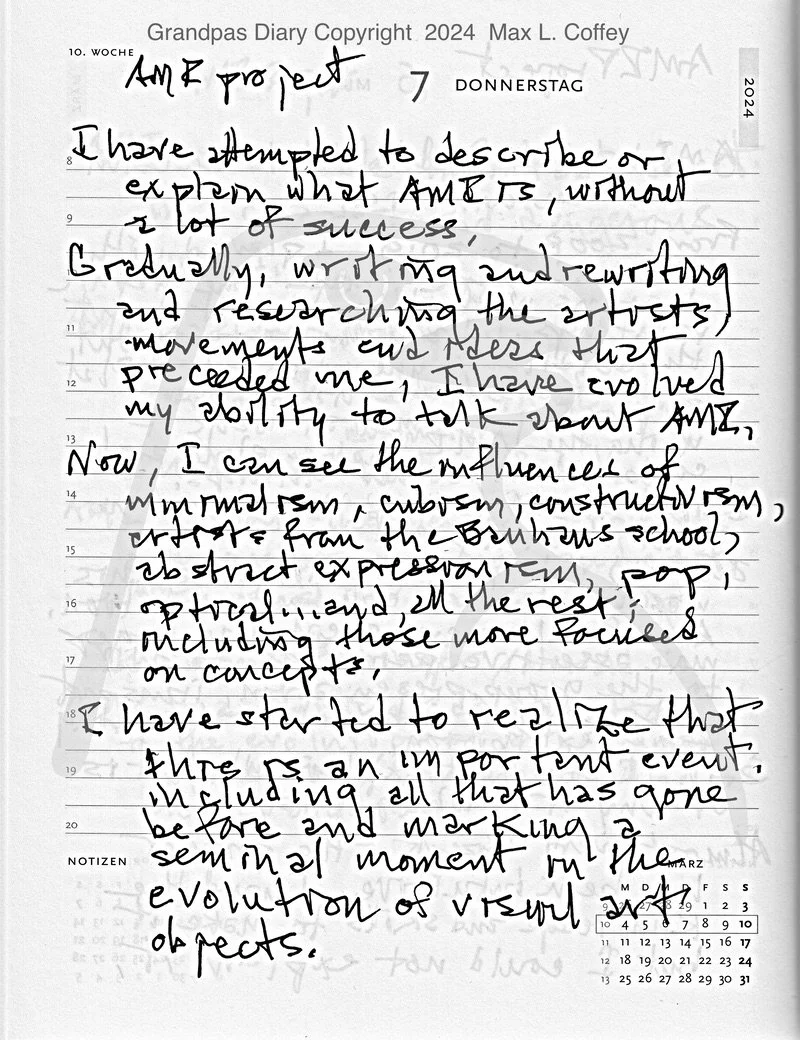 Grandpas Diary Copyright 2024 Max L. Coffey
10. WOCHE
AMI project
7 DONNERSTAG
2024
8 I have attempted to describe or
explain what AMI is, without
9 a lot of success.
Gradually, writing and rewriting
and researching the artists,
11 movements and ideas that
12 preceeded me, I have evolved
my ability to talk about AMI.
13
Now, I can see the influences of
14 minimalism, cubism, constructivism,
artists from the Bauhaus school,
15 abstract expressionism, pop,
16 optical... and, all the rest;
including those more focused
17 on concepts.
18 I have started to realize that
19 this is an important event.
including all that has gone
20 before and marking a
NOTIZEN seminal moment in the
MÄRZ
evolution of visual art
objects.
M D M D F S S
9 26 27 28 29 1 2 3
10 4 5 6 7 8 9 10
11 11 12 13 14 15 16 17
12 18 19 20 21 22 23 24
13 25 26 27 28 29 30 31